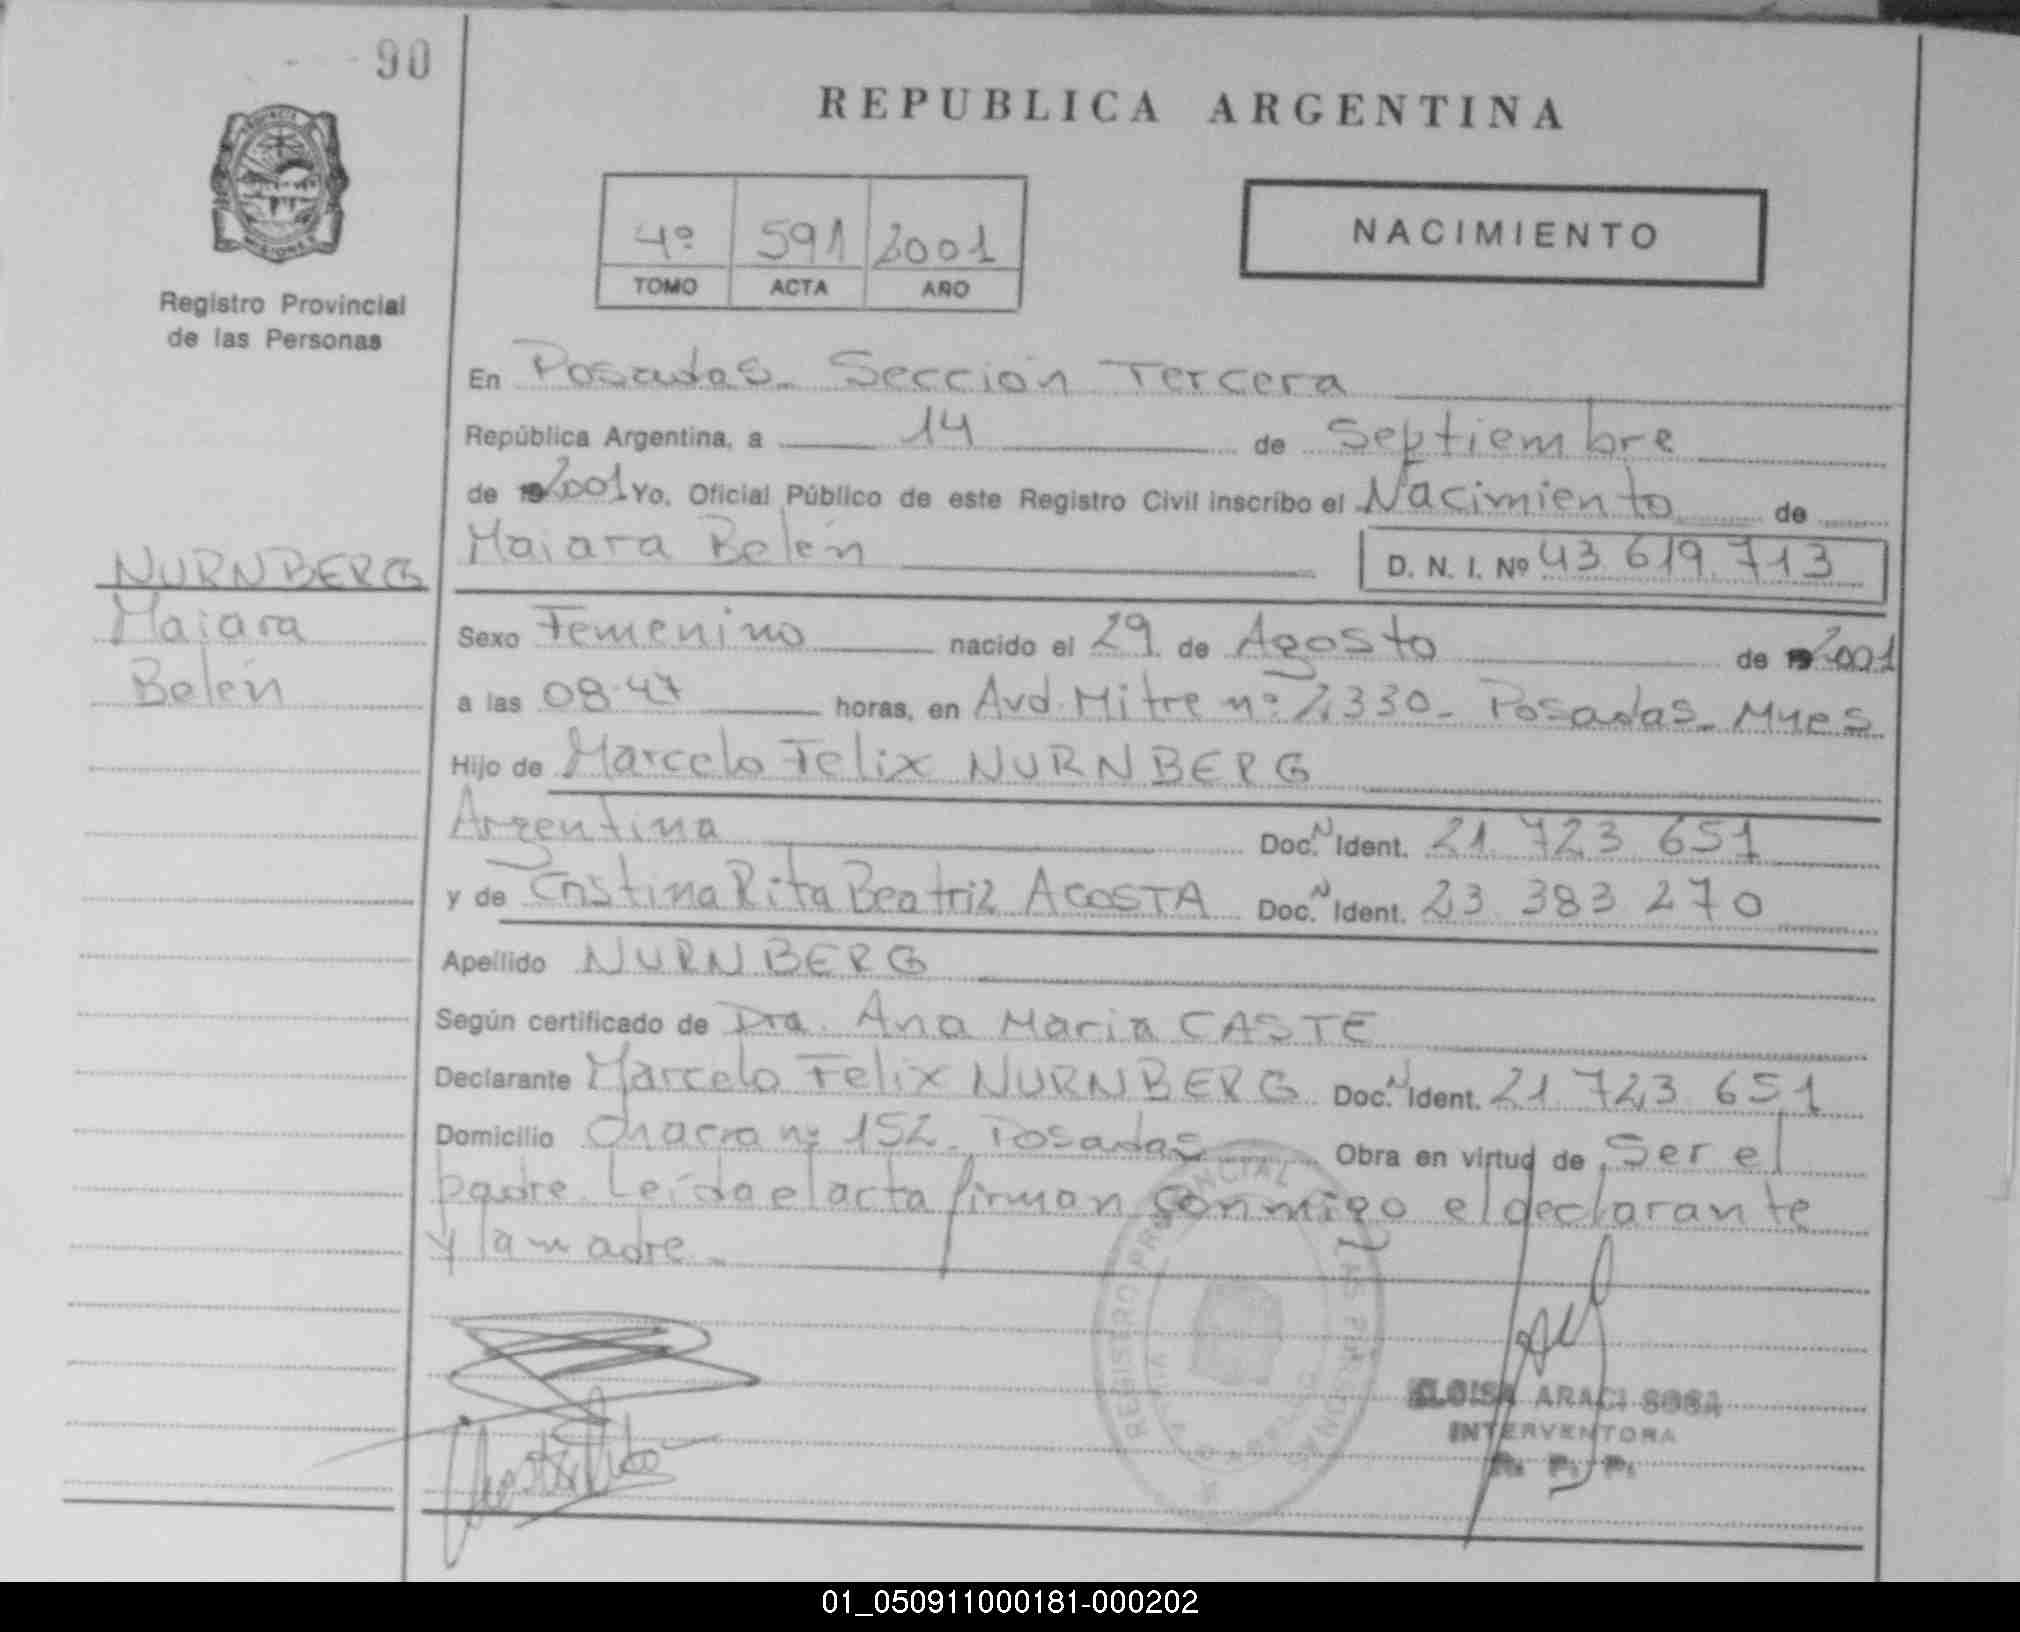 90
REPUBLICA ARGENTINA
PROVINCIA DE
MISIONES
4º 591 2001
TOMO ACTA AÑO
NACIMIENTO
Registro Provincial
de las Personas
En Posadas - Sección Tercera
República Argentina, a 14 de Septiembre
de 2001 Yo, Oficial Público de este Registro Civil inscribo el Nacimiento de
Maiara Belén D. N. I. Nº 43.619.713
NURNBERG
Maiara
Belén
Sexo Femenino nacido el 29 de Agosto de 2001
a las 08.47 horas, en Avd. Mitre nº 2330 - Posadas - Mnes
Hijo de Marcelo Felix NURNBERG
Argentina Doc. N Ident. 21 723 651
y de Cristina Rita Beatriz ACOSTA Doc. N Ident. 23 383 270
Apellido NURNBERG
Según certificado de Dra. Ana Maria CASTE
Declarante Marcelo Felix NURNBERG Doc. N Ident. 21 723 651
Domicilio Chacra nº 152 - Posadas Obra en virtud de Ser el
padre. Leída el acta firman conmigo el declarante
y la madre -
REGISTRO PROVINCIAL DE LAS PERSONAS
ELOISA ARACI SOSA
INTERVENTORA
R. P. P.
01_050911000181-000202